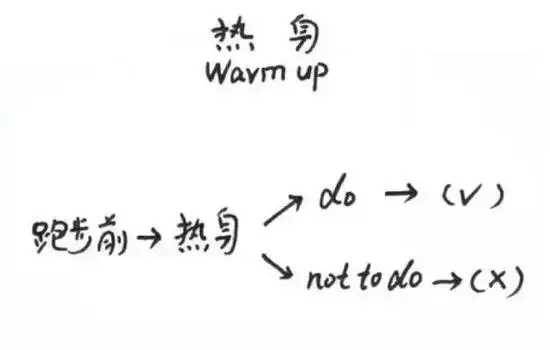 热身
Warm up
do → (√)
跑步前 → 热身
not to do → (×)